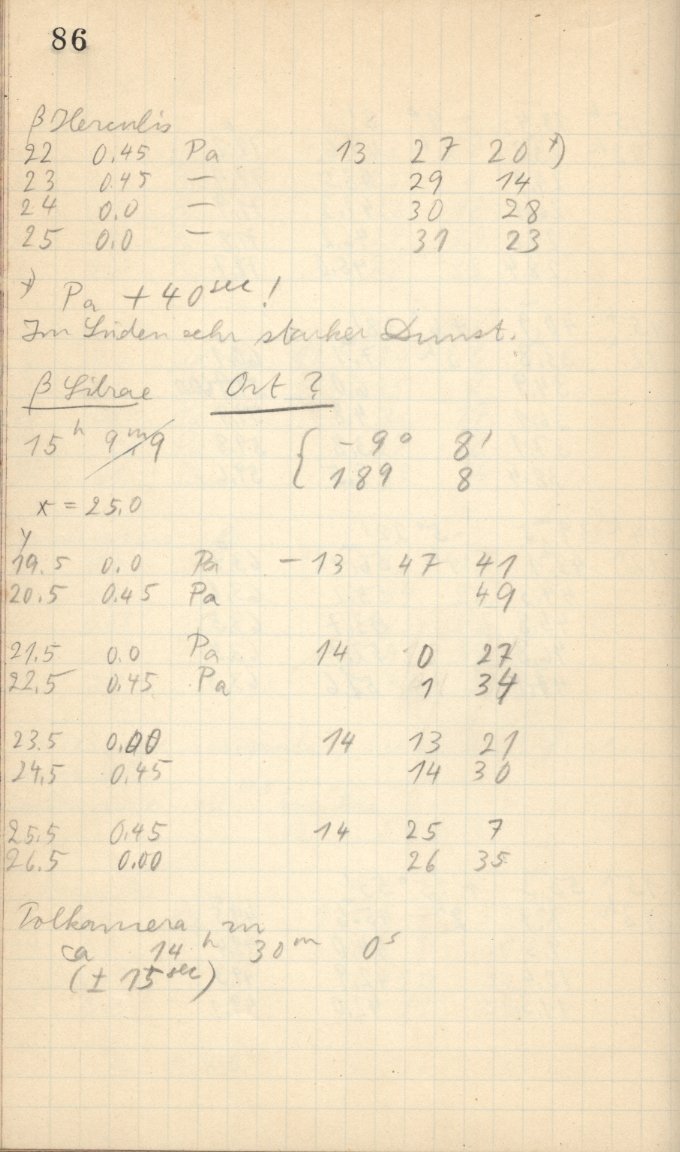 86
β Herculis
22 0.45 Pa 13 27 20 *)
23 0.45 — 29 14
24 0.0 — 30 28
25 0.0 — 31 23
*) Pa + 40 sec!
Im Süden sehr starker Dunst.
β Librae Ort?
15h 9m.9 { -9° 8'
189 8
x = 25.0
y
19.5 0.0 Pa — 13 47 41
20.5 0.45 Pa 49
21.5 0.0 Pa 14 0 27
22.5 0.45 Pa 1 34
23.5 0.00 14 13 21
24.5 0.45 14 30
25.5 0.45 14 25 7
26.5 0.00 26 35
Polkamera zu
ca 14h 30m 0s
(± 15sec)